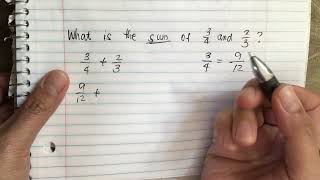 What is the sum of 3/4 and 2/3 ?
3/4 + 2/3
3/4 = 9/12
9/12 +